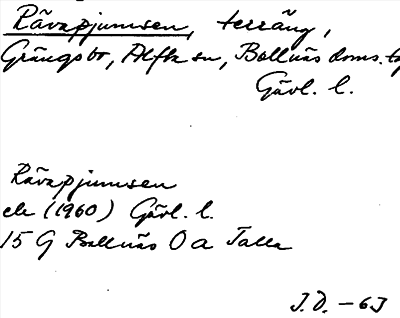 Rävapjumsen, terräng,
Grängsbo, Alfta sn, Bollnäs doms.
Gävl. l.
Rävapjumsen
ek (1960) Gävl. l.
15 G Bollnäs O a Talla
J.D. - 63